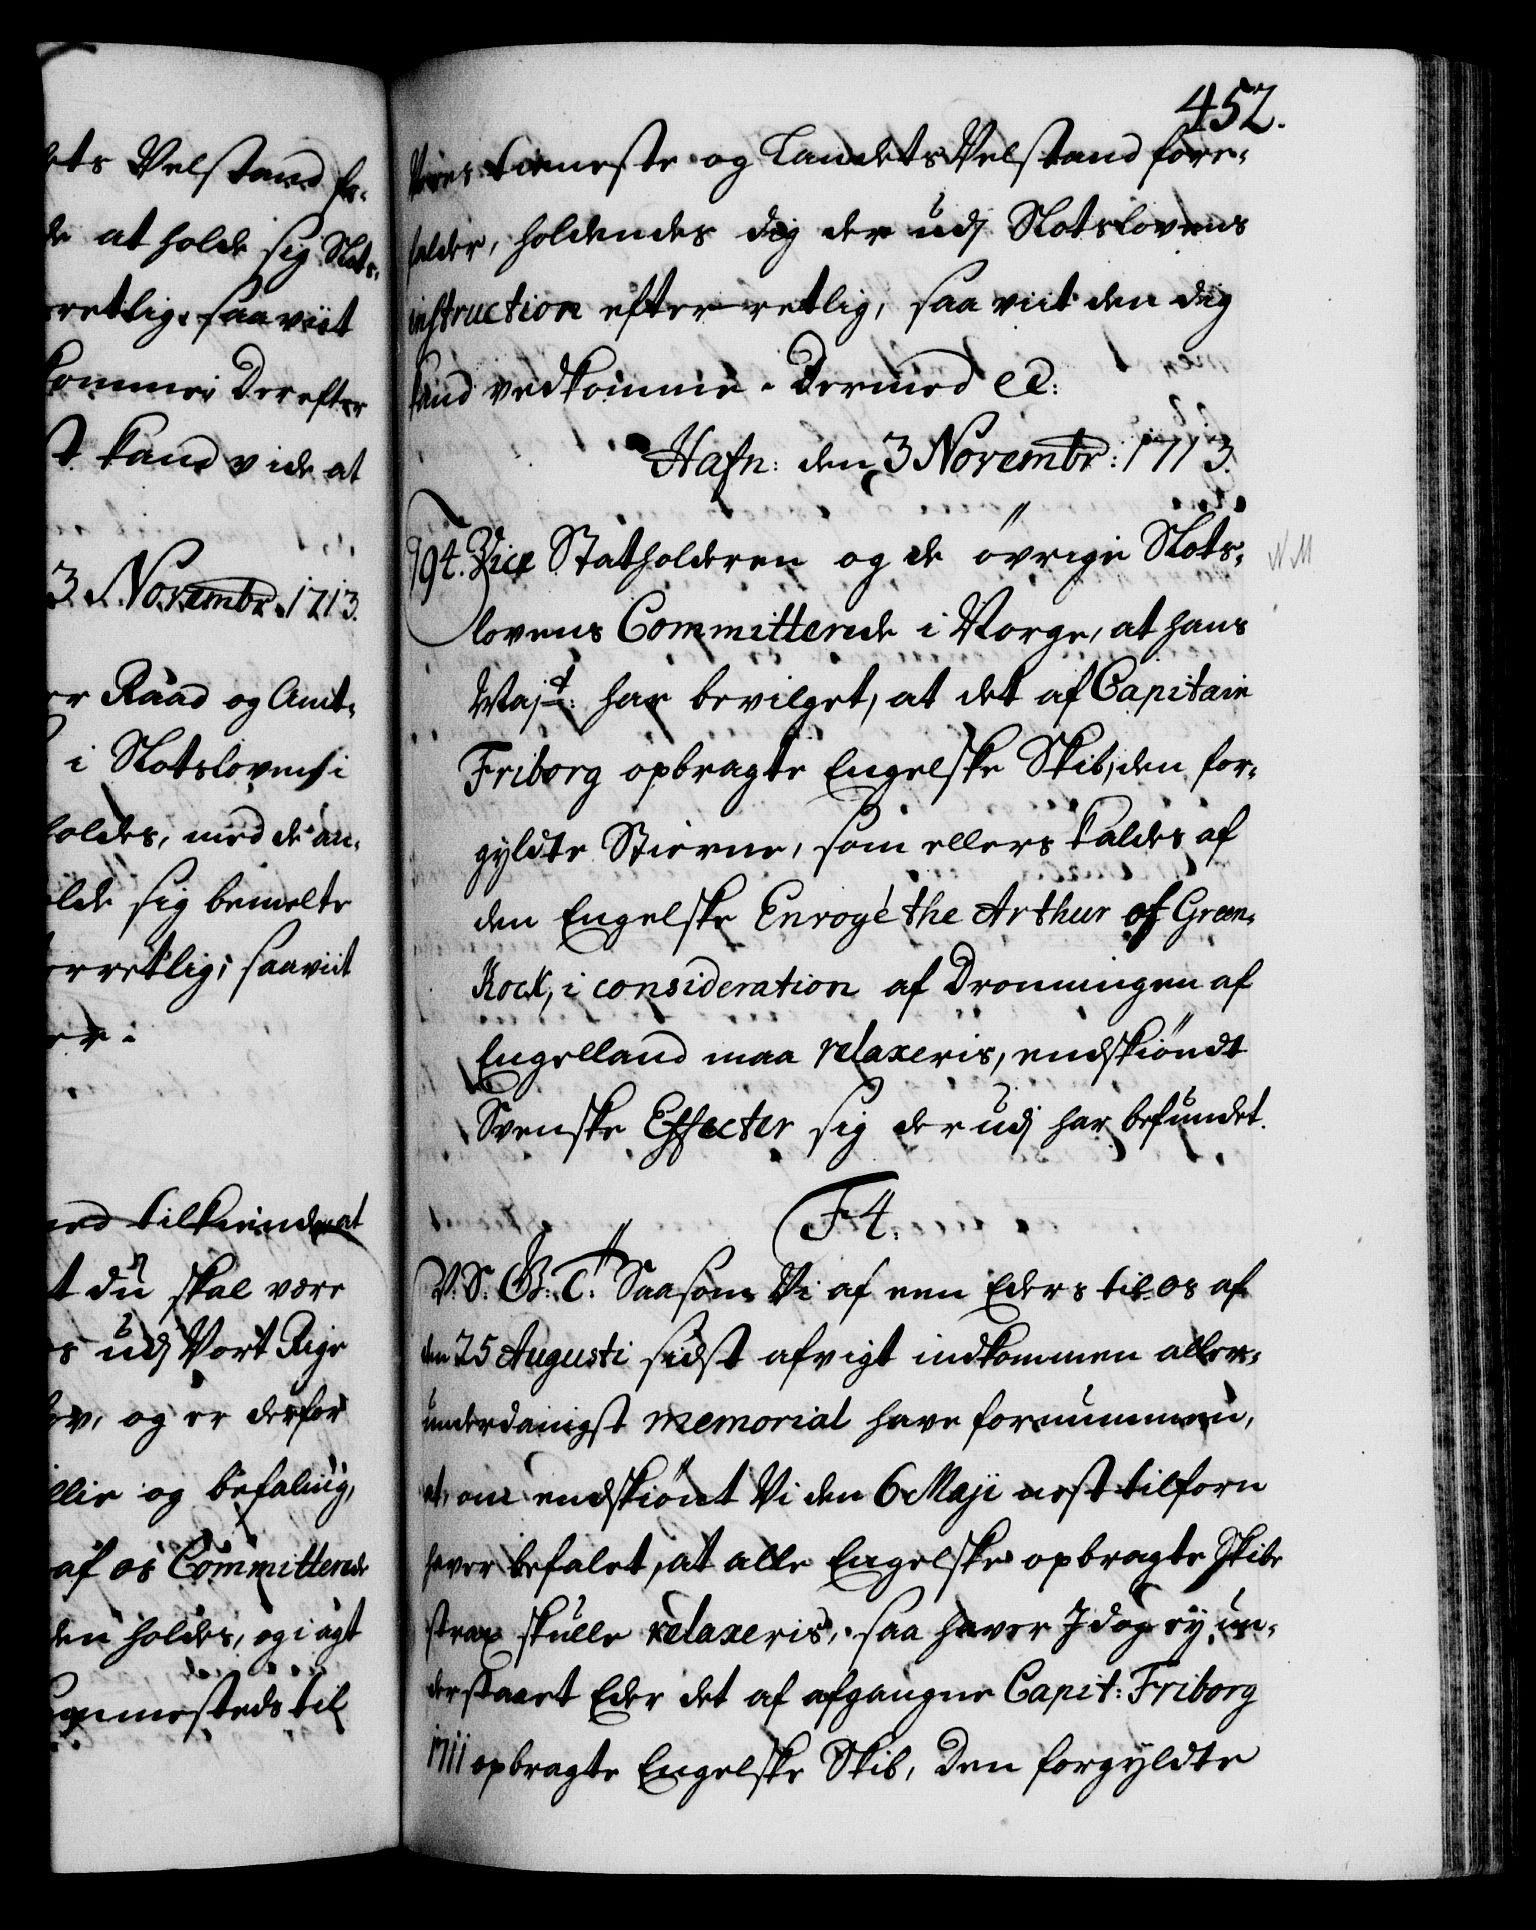 452.
ets Velstand fo-
de at holde sig Slots-
rretlig, saa viit
komme; Derefter
t kand vide at
3 Novembr. 1713.
er Raad og Amt-
i Slotslovens i
holdes, med de an-
olde sig bemelte
erretlig; saa viit
at
t du skal være
s udj Vort Rige
og er derfor
llie og befaling,
af os Committerede
den holdes, og i agt
til
Vores tieneste og Landets Velstand fore-
falder, holdendes dig der udj Slotslovens
instruction efterretlig, saa viit den dig
kand vedkomme. Dermed etc:
Hafn: den 3 Novembr: 1713.
794. Vice Statholderen og de övrige Slots-
lovens Committerede i Norge, at hans
Majt: har bevilget, at det af Capitain
Friborg opbragte Engelske Skib, den for-
gyldte Stierne, som ellers kaldes af
den Engelske Enroyé the Arthur of Green-
Rock, i consideration af Dronningen af
Engelland maa relaxeris, endskiöndt
Svenske Effecter sig der udj har befundet.
F4.
V. S. G: T: Saasom Vi af een Eders til os af
den 25 Augusti sidst afvigt indkommen aller-
underdanigst memorial have fornummen,
at, om endskiönt Vi den 6 Maji nest tilforn
haver befalet, at alle Engelske opbragte Skibe
strax skulle relaxeris, saa haver I dog ey un-
derstaaet Eder det af afgangne Capit: Friborg
1711 opbragte Engelske Skib, Den forgyldte